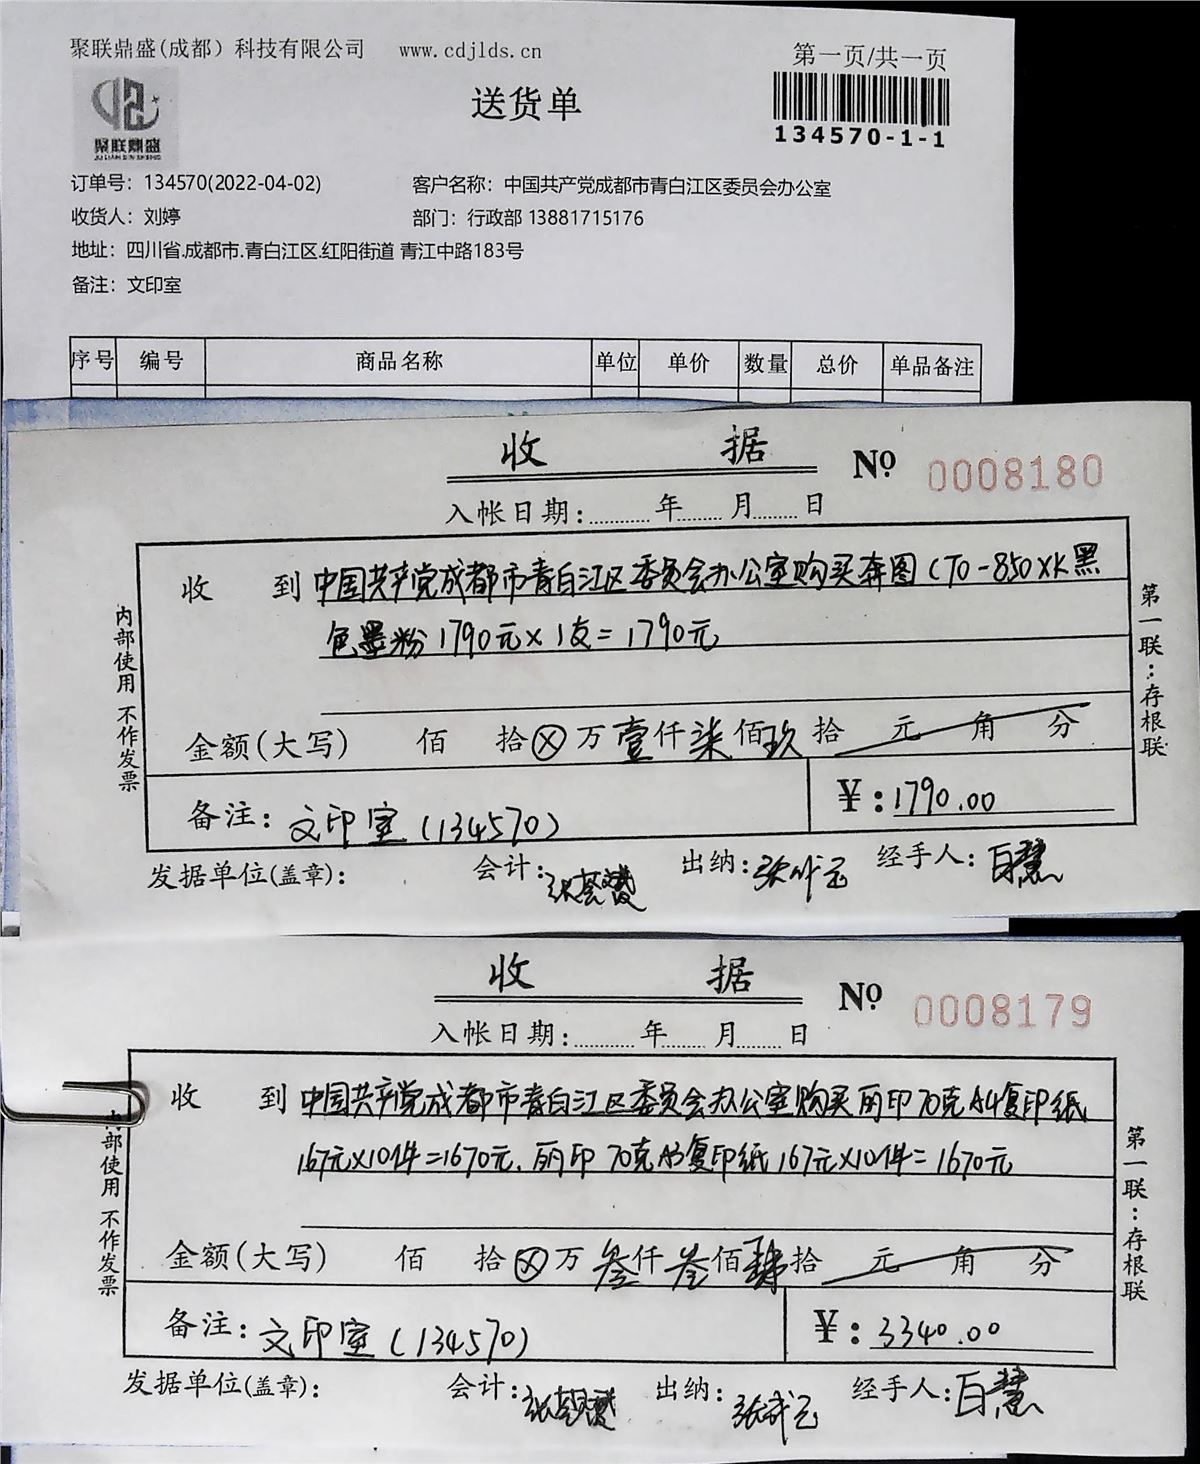 聚联鼎盛(成都）科技有限公司 www.cdjlds.cn
第一页/共一页
送货单
134570-1-1
聚联鼎盛
JU LIAN DIN SHENG
订单号：134570(2022-04-02) 客户名称：中国共产党成都市青白江区委员会办公室
收货人：刘婷 部门：行政部 13881715176
地址：四川省.成都市.青白江区.红阳街道 青江中路183号
备注：文印室
序号 编号 商品名称 单位 单价 数量 总价 单品备注
收 据 Nº 0008180
入帐日期： 年 月 日
收 到 中国共产党成都市青白江区委员会办公室购买奔图CTO-850XK黑
色墨粉1790元×1支=1790元
金额(大写) 佰 拾ⓧ万壹仟柒佰玖拾 元 角 分
备注：文印室(134570) ￥：1790.00
发据单位(盖章)： 会计： 出纳： 经手人：白慧
内部使用 不作发票
第一联：存根联
收 据 Nº 0008179
入帐日期： 年 月 日
收 到 中国共产党成都市青白江区委员会办公室购买丽印70克A4复印纸
167元×10件=1670元.丽印70克A3复印纸167元×10件=1670元
金额(大写) 佰 拾ⓧ万叁仟叁佰肆拾 元 角 分
备注：文印室(134570) ￥：3340.00
发据单位(盖章)： 会计： 出纳： 经手人：白慧
内部使用 不作发票
第一联：存根联